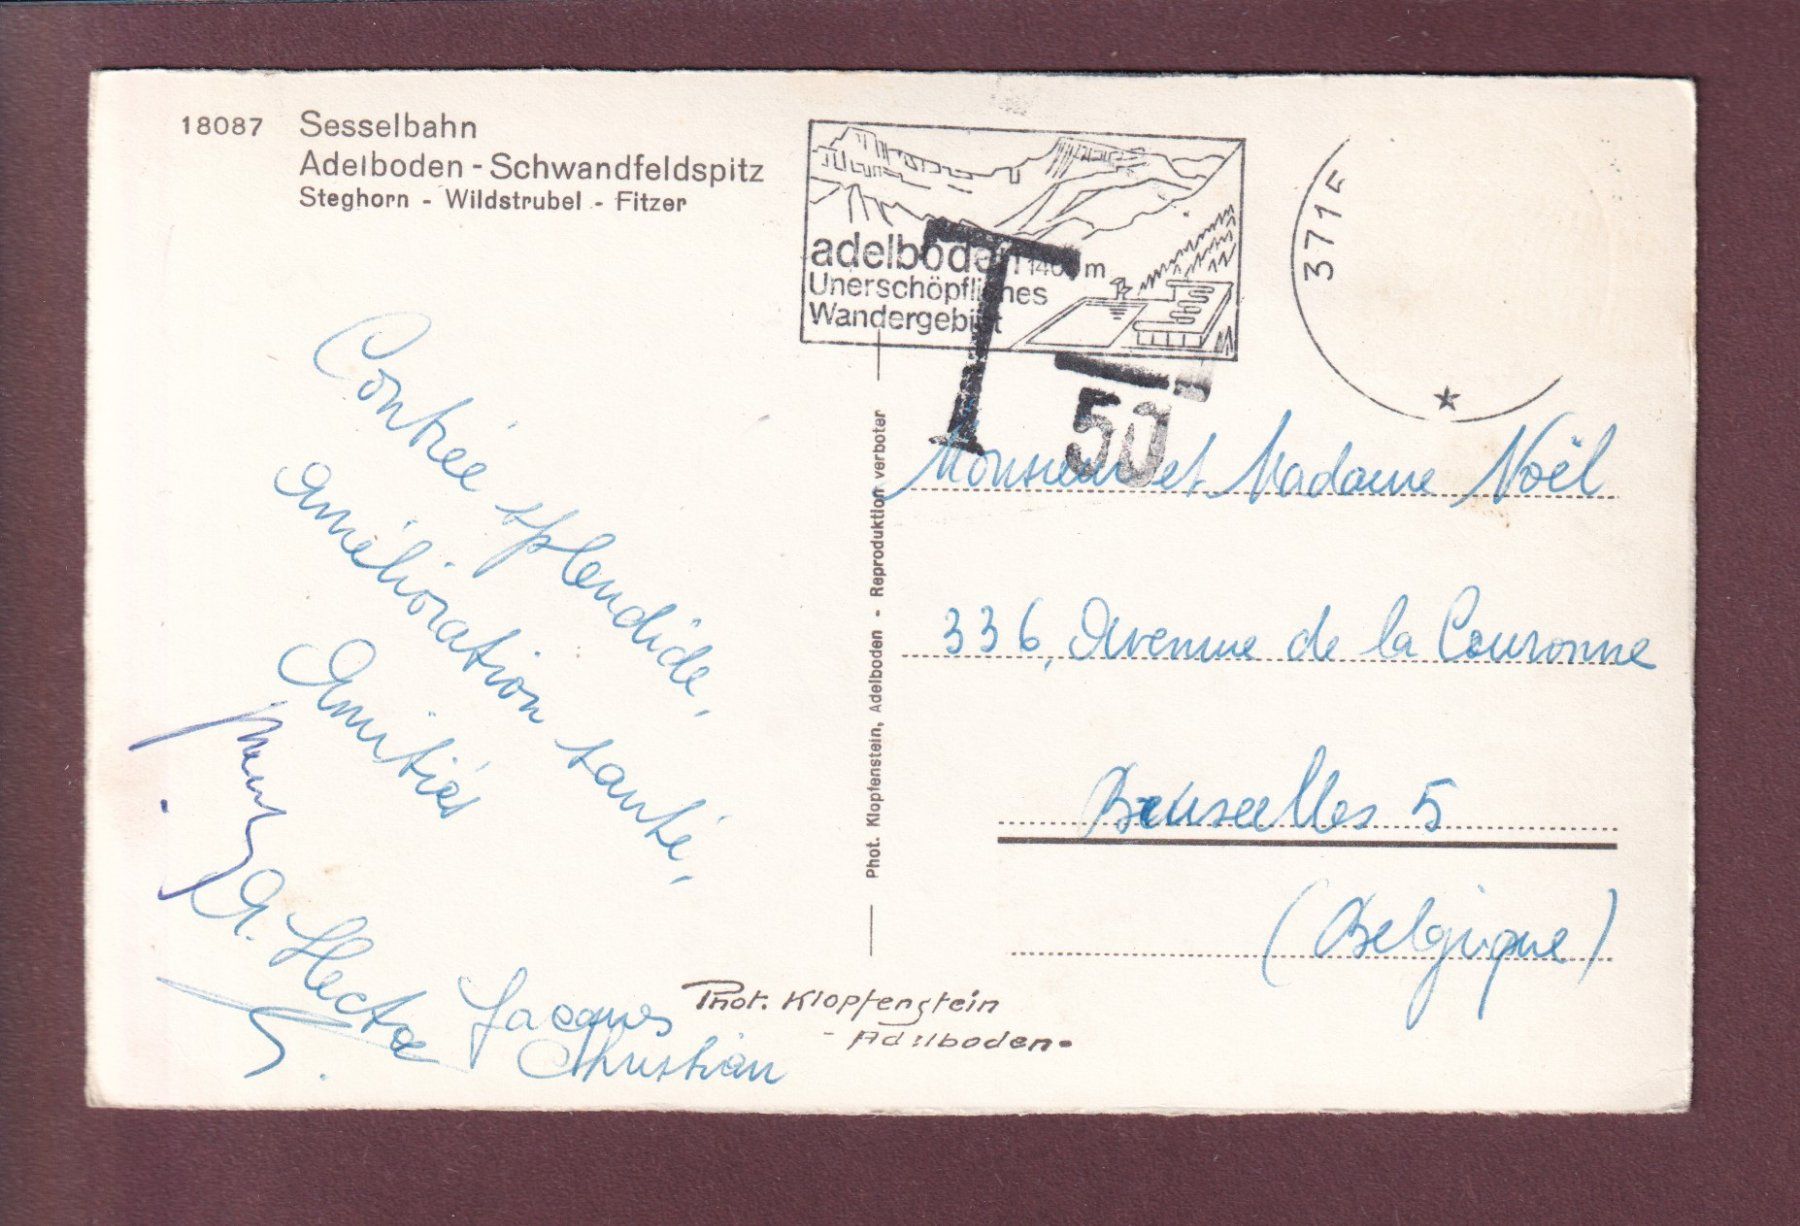 18087 Sesselbahn
Adelboden - Schwandfeldspitz
Steghorn - Wildstrubel - Fitzer
adelboden 1400 m
Unerschöpfliches
Wandergebiet
371
T
T
50
Contrée splendide,
amélioration santé,
Amitiés
G. Hecta
Jacques
Christian
Phot. Klopfenstein, Adelboden - Reproduktion verboten
Monsieur et Madame Noël
336, Avenue de la Couronne
Bruxelles 5
(Belgique)
Phot. Klopfenstein
- Adelboden -